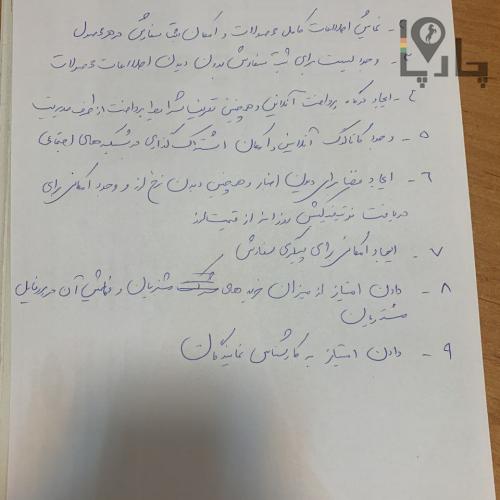 چارپا
۲- نمایش اطلاعات کامل محصولات و امکان ثبت سفارش در هر محصول
۳- وجود لیست برای ثبت سفارش بدون دیدن اطلاعات محصولات
۴- ایجاد درگاه پرداخت آنلاین و همچنین تعریف شرایط پرداخت از طرف مدیریت
۵- وجود کاتالوگ آنلاین و امکان اشتراک گذاری در شبکه های اجتماعی
۶- ایجاد فضا برای دیدن اخبار و همچنین دیدن نرخ ارز و وجود امکانی برای
دریافت نوتیفیکیشن روزانه از قیمت ارز
۷- ایجاد امکانی برای پیگیری سفارش
۸- دادن امتیاز از میزان خرید های مشتریان و نمایش آن در پروفایل
مشتریان
۹- دادن امتیاز به کارشناس نمایندگان